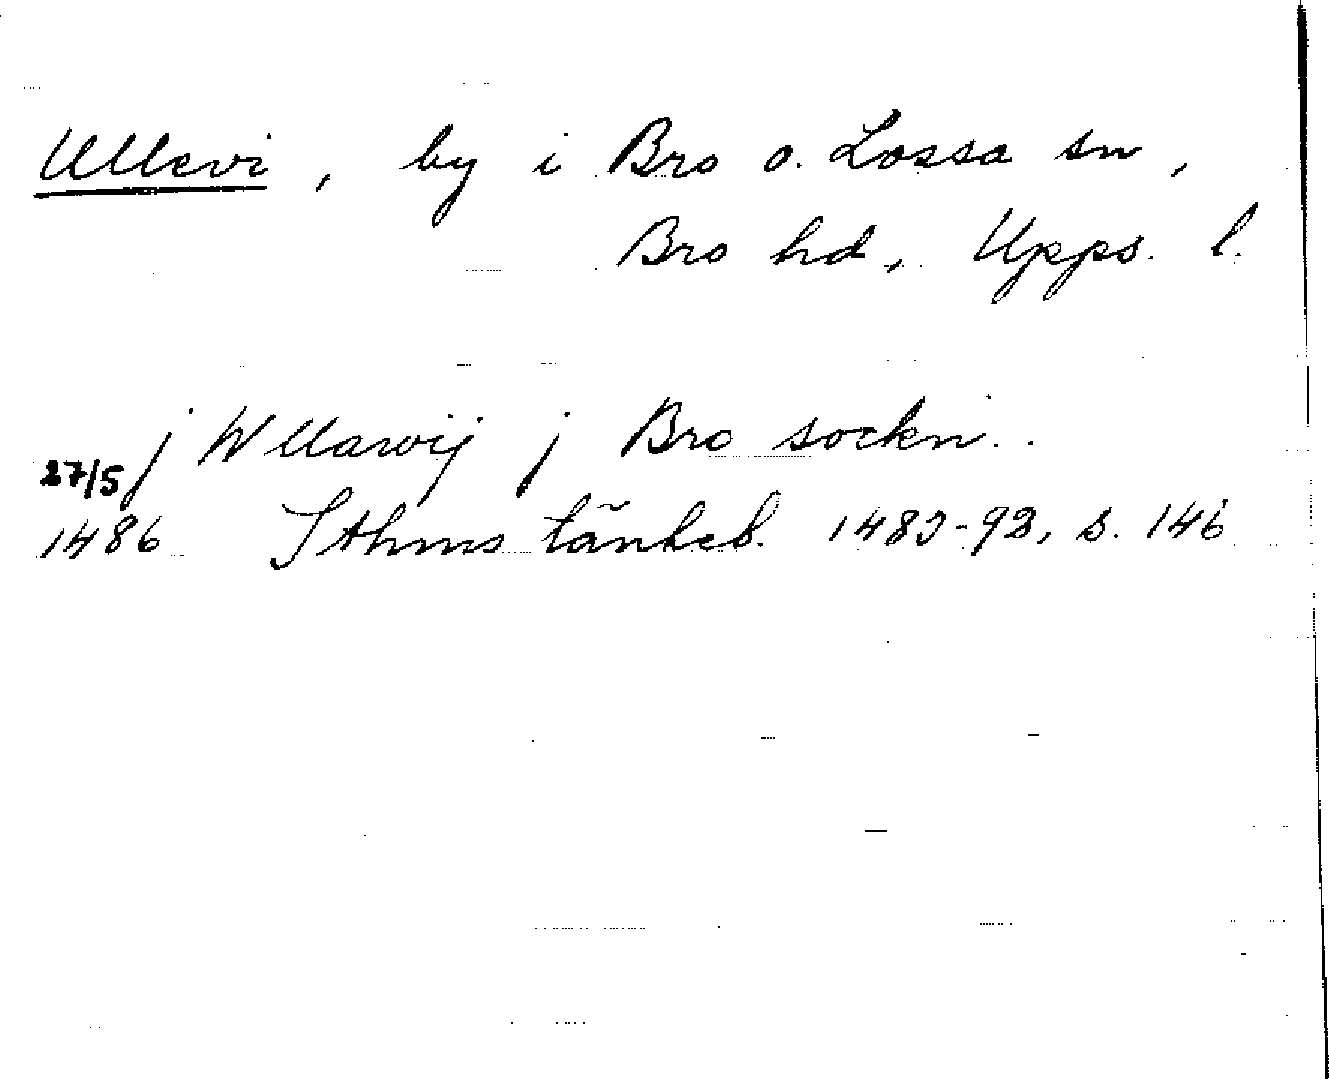 Ullevi, by i Bro o. Lossa sn,
Bro hd, Upps. l.
j Wllawij j Bro sockn.
27/5
1486 Sthms tänkeb. 1483-92, s. 146